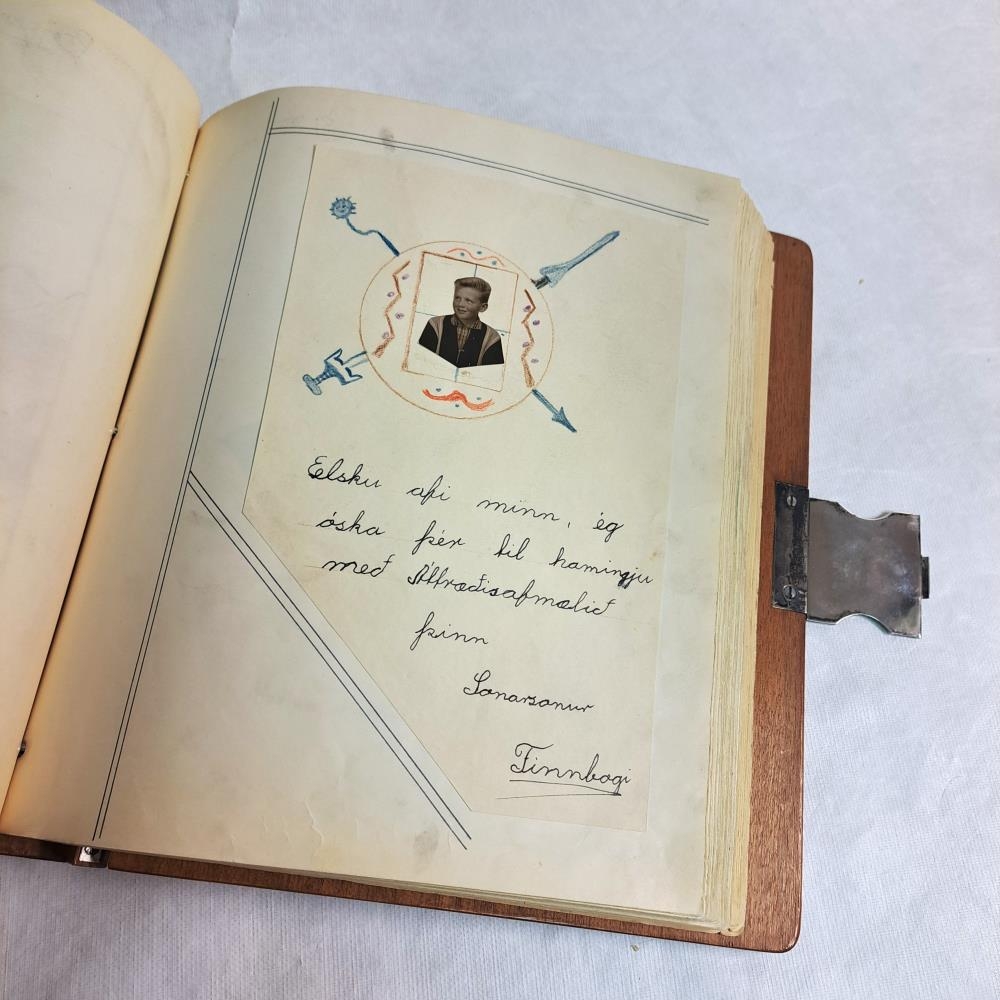 Elsku afi minn, ég
óska þér til hamingju
með Áttræðisafmælið
þinn
Sonarsonur
Finnbogi